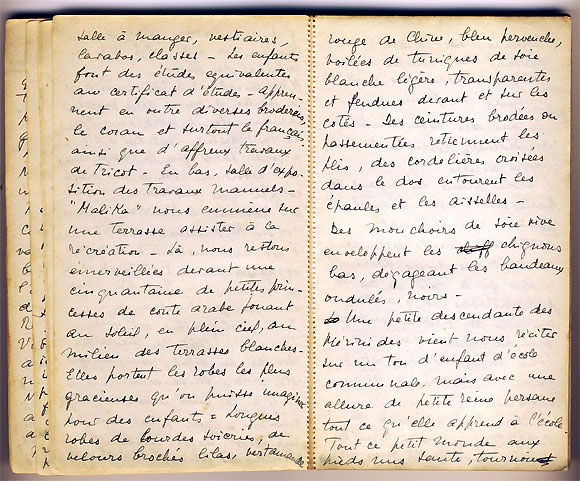 salle à manger, vestiaires,
lavabos, classes – Les enfants
font des études équivalentes
au certificat d'études – Appren-
nent en outre diverses broderies,
le coran et surtout le français,
ainsi que d'affreux travaux
de Tricot – En bas, salle d'expo-
sition des travaux manuels –
"Malika" nous emmène sur
une terrasse assister à la
récréation – Là, nous restons
émerveillées devant une
cinquantaine de petites prin-
cesses de conte arabe jouant
au soleil, en plein ciel, au
milieu des terrasses blanches –
Elles portent les robes les plus
gracieuses qu'on puisse imaginer
pour des enfants = Longues
robes de lourdes soieries, de
velours brochés lilas, vert amande
rouge de Chine, bleu pervenche,
voilées de tuniques de soie
blanche légère, transparentes
et fendues devant et sur les
cotés – Des ceintures brodées ou
passementées retiennent les
plis, des cordelières croisées
dans le dos entourent les
épaules et les aisselles –
Des mouchoirs de soie vive
enveloppent les chignons
bas, dégageant les bandeaux
ondulés, noirs –
Une petite descendante des
Mérinides vient nous réciter
sur un ton d'enfant d'école
communale, mais avec une
allure de petite reine persane
tout ce qu'elle apprend à l'école
Tout ce petit monde aux
pieds nus saute,